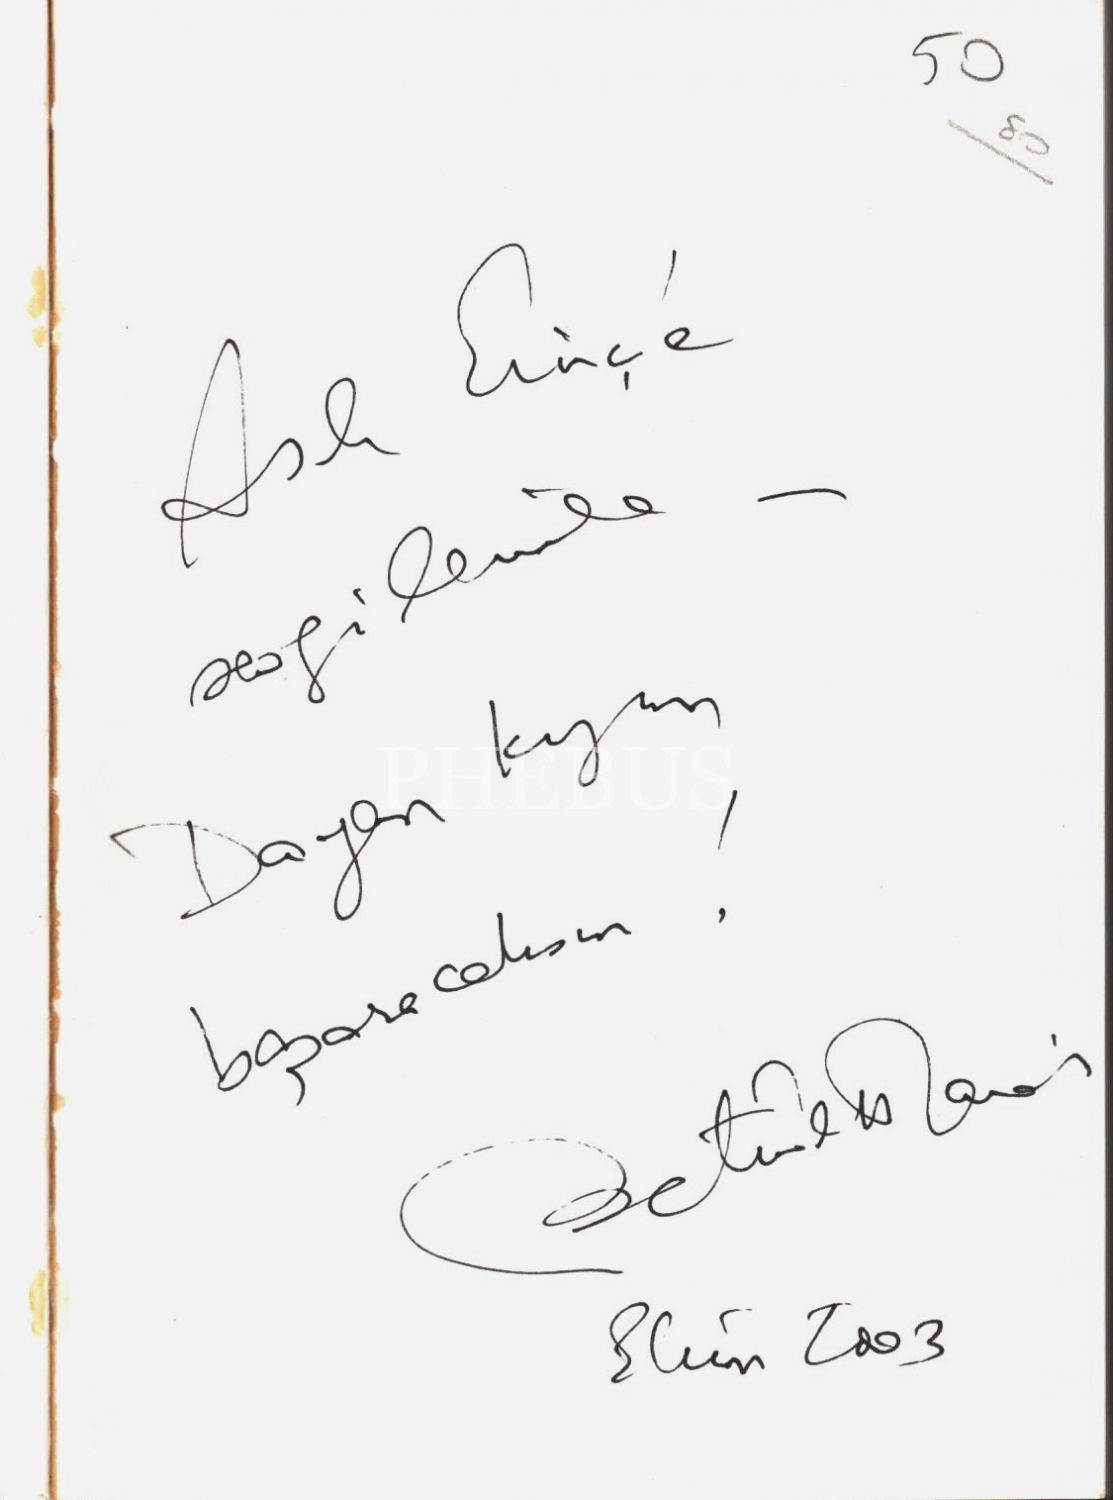 50
80
Aslı Erinç'e
sevgilerimle —
Dayan kızım
başaracaksın!
Betül Mardin
Ekim 2003
PHEBUS